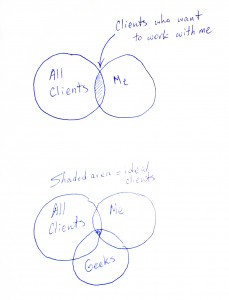 Clients who want
to work with me
All
Clients
Me
Shaded area = ideal
clients
All
Clients
Me
Geeks